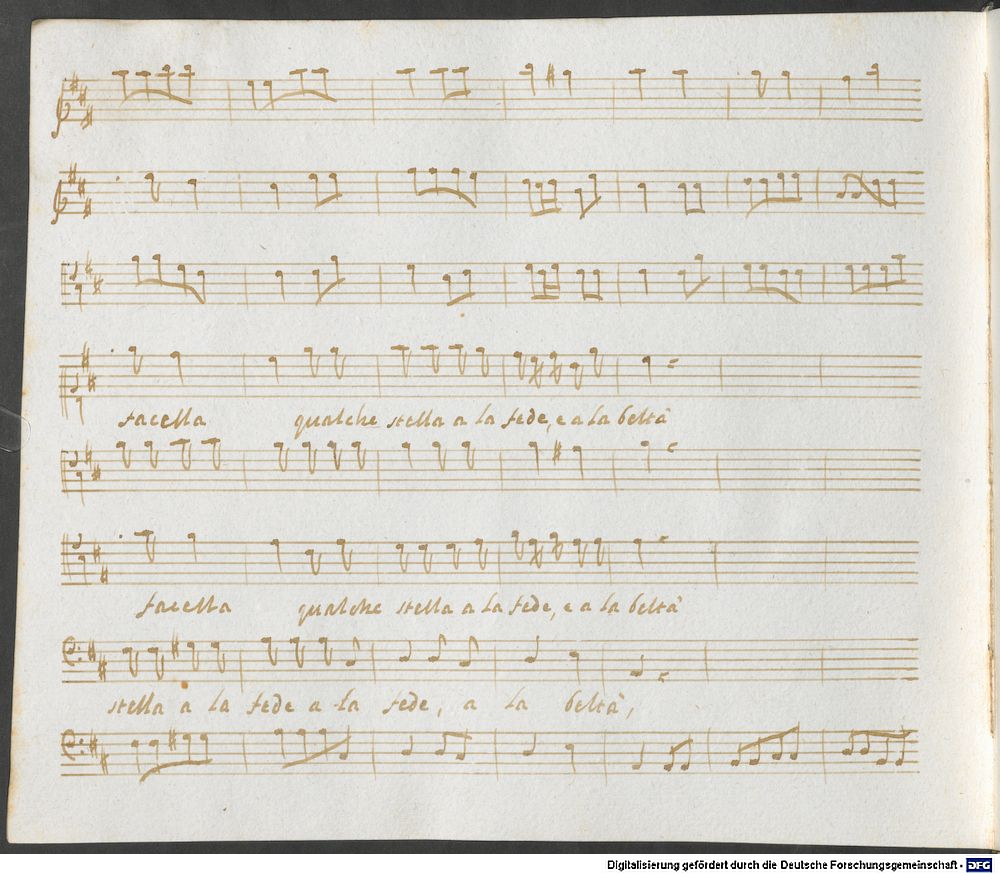 facella qualche stella a la fede, e a la beltà
facella qualche stella a la fede, e a la beltà
stella a la fede a la fede, a la beltà,
Digitalisierung gefördert durch die Deutsche Forschungsgemeinschaft - DFG